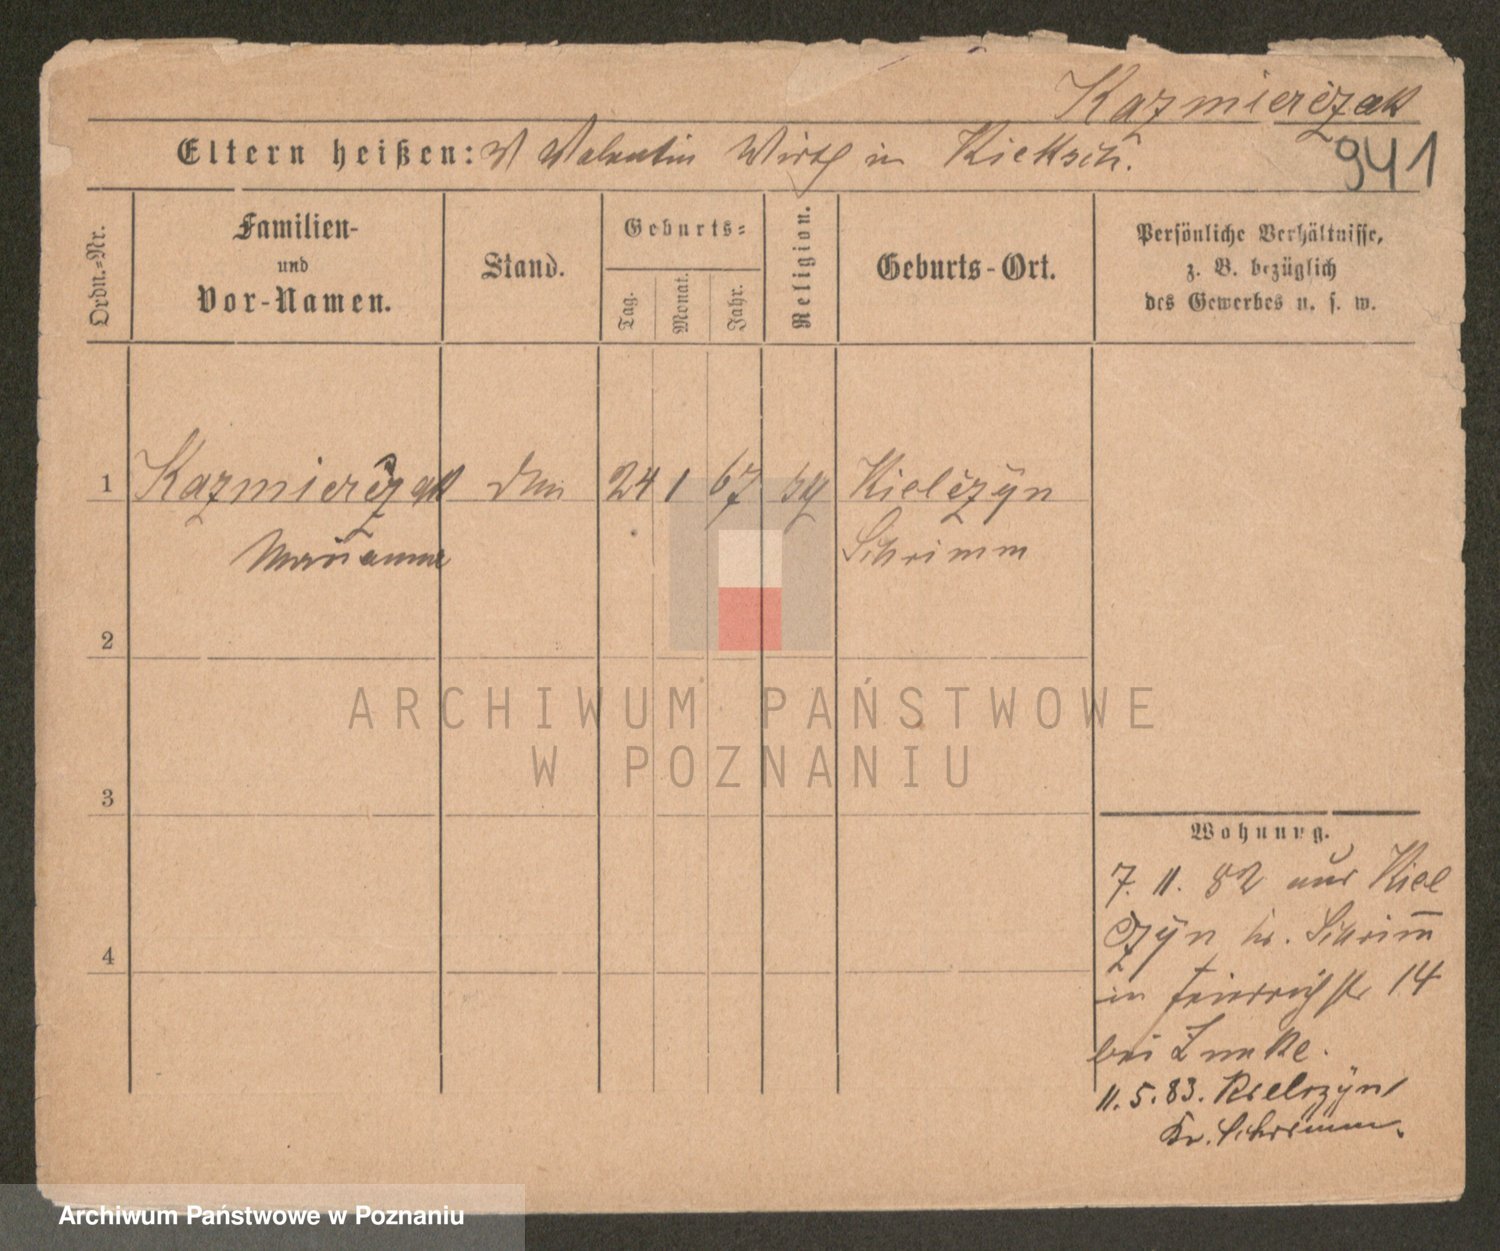 Kazmierczak
Eltern heißen: V Valentin Wirth in Kieksch.
941
Ordn.-Nr.
Familien-
und
Vor-Namen.
Stand.
Geburts-
Tag.
Monat.
Jahr.
Religion.
Geburts-Ort.
Persönliche Verhältnisse,
z. B. bezüglich
des Gewerbes u. s. w.
1 Kazmierczak 24 1 67 Kielczyn
Marianna Schrimm
2
3
4
Wohnung.
7. 11. 82 aus Kiel
czyn Schrim̅
in 14
bei
11. 5. 83. Kielczyn
Kr. Schrimm.
ARCHIWUM PAŃSTWOWE
W POZNANIU
Archiwum Państwowe w Poznaniu